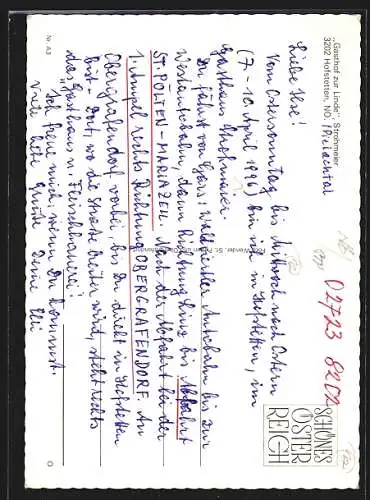 "Gasthof zur Linde", Strohmaier
3202 Hofstetten, NÖ. /Pielachtal
Liebe Ilse!
Vom Ostersonntag bis Mittwoch nach Ostern
(7 - 10 April 1996) bin ich in Hofstetten, im
Gasthaus Strohmaier.
Du fährst von Gars: Waldviertler Autobahn bis zur
Westautobahn, dann Richtung Linz bis Abfahrt
ST. PÖLTEN-MARIAZELL. Nach der Abfahrt bei der
1. Ampel rechts Richtung OBERGRAFENDORF. An
Obergrafendorf vorbei bis Du direkt in Hofstetten
bist - Dort, wo die Straße breiter wird, steht rechts
das "Gasthaus u. Fleischhauerei".
Ich freue mich, wenn Du kommst.
Viele liebe Grüße Deine Elli
02723 8202
SCHÖNES
ÖSTER
REICH
Nr. A3